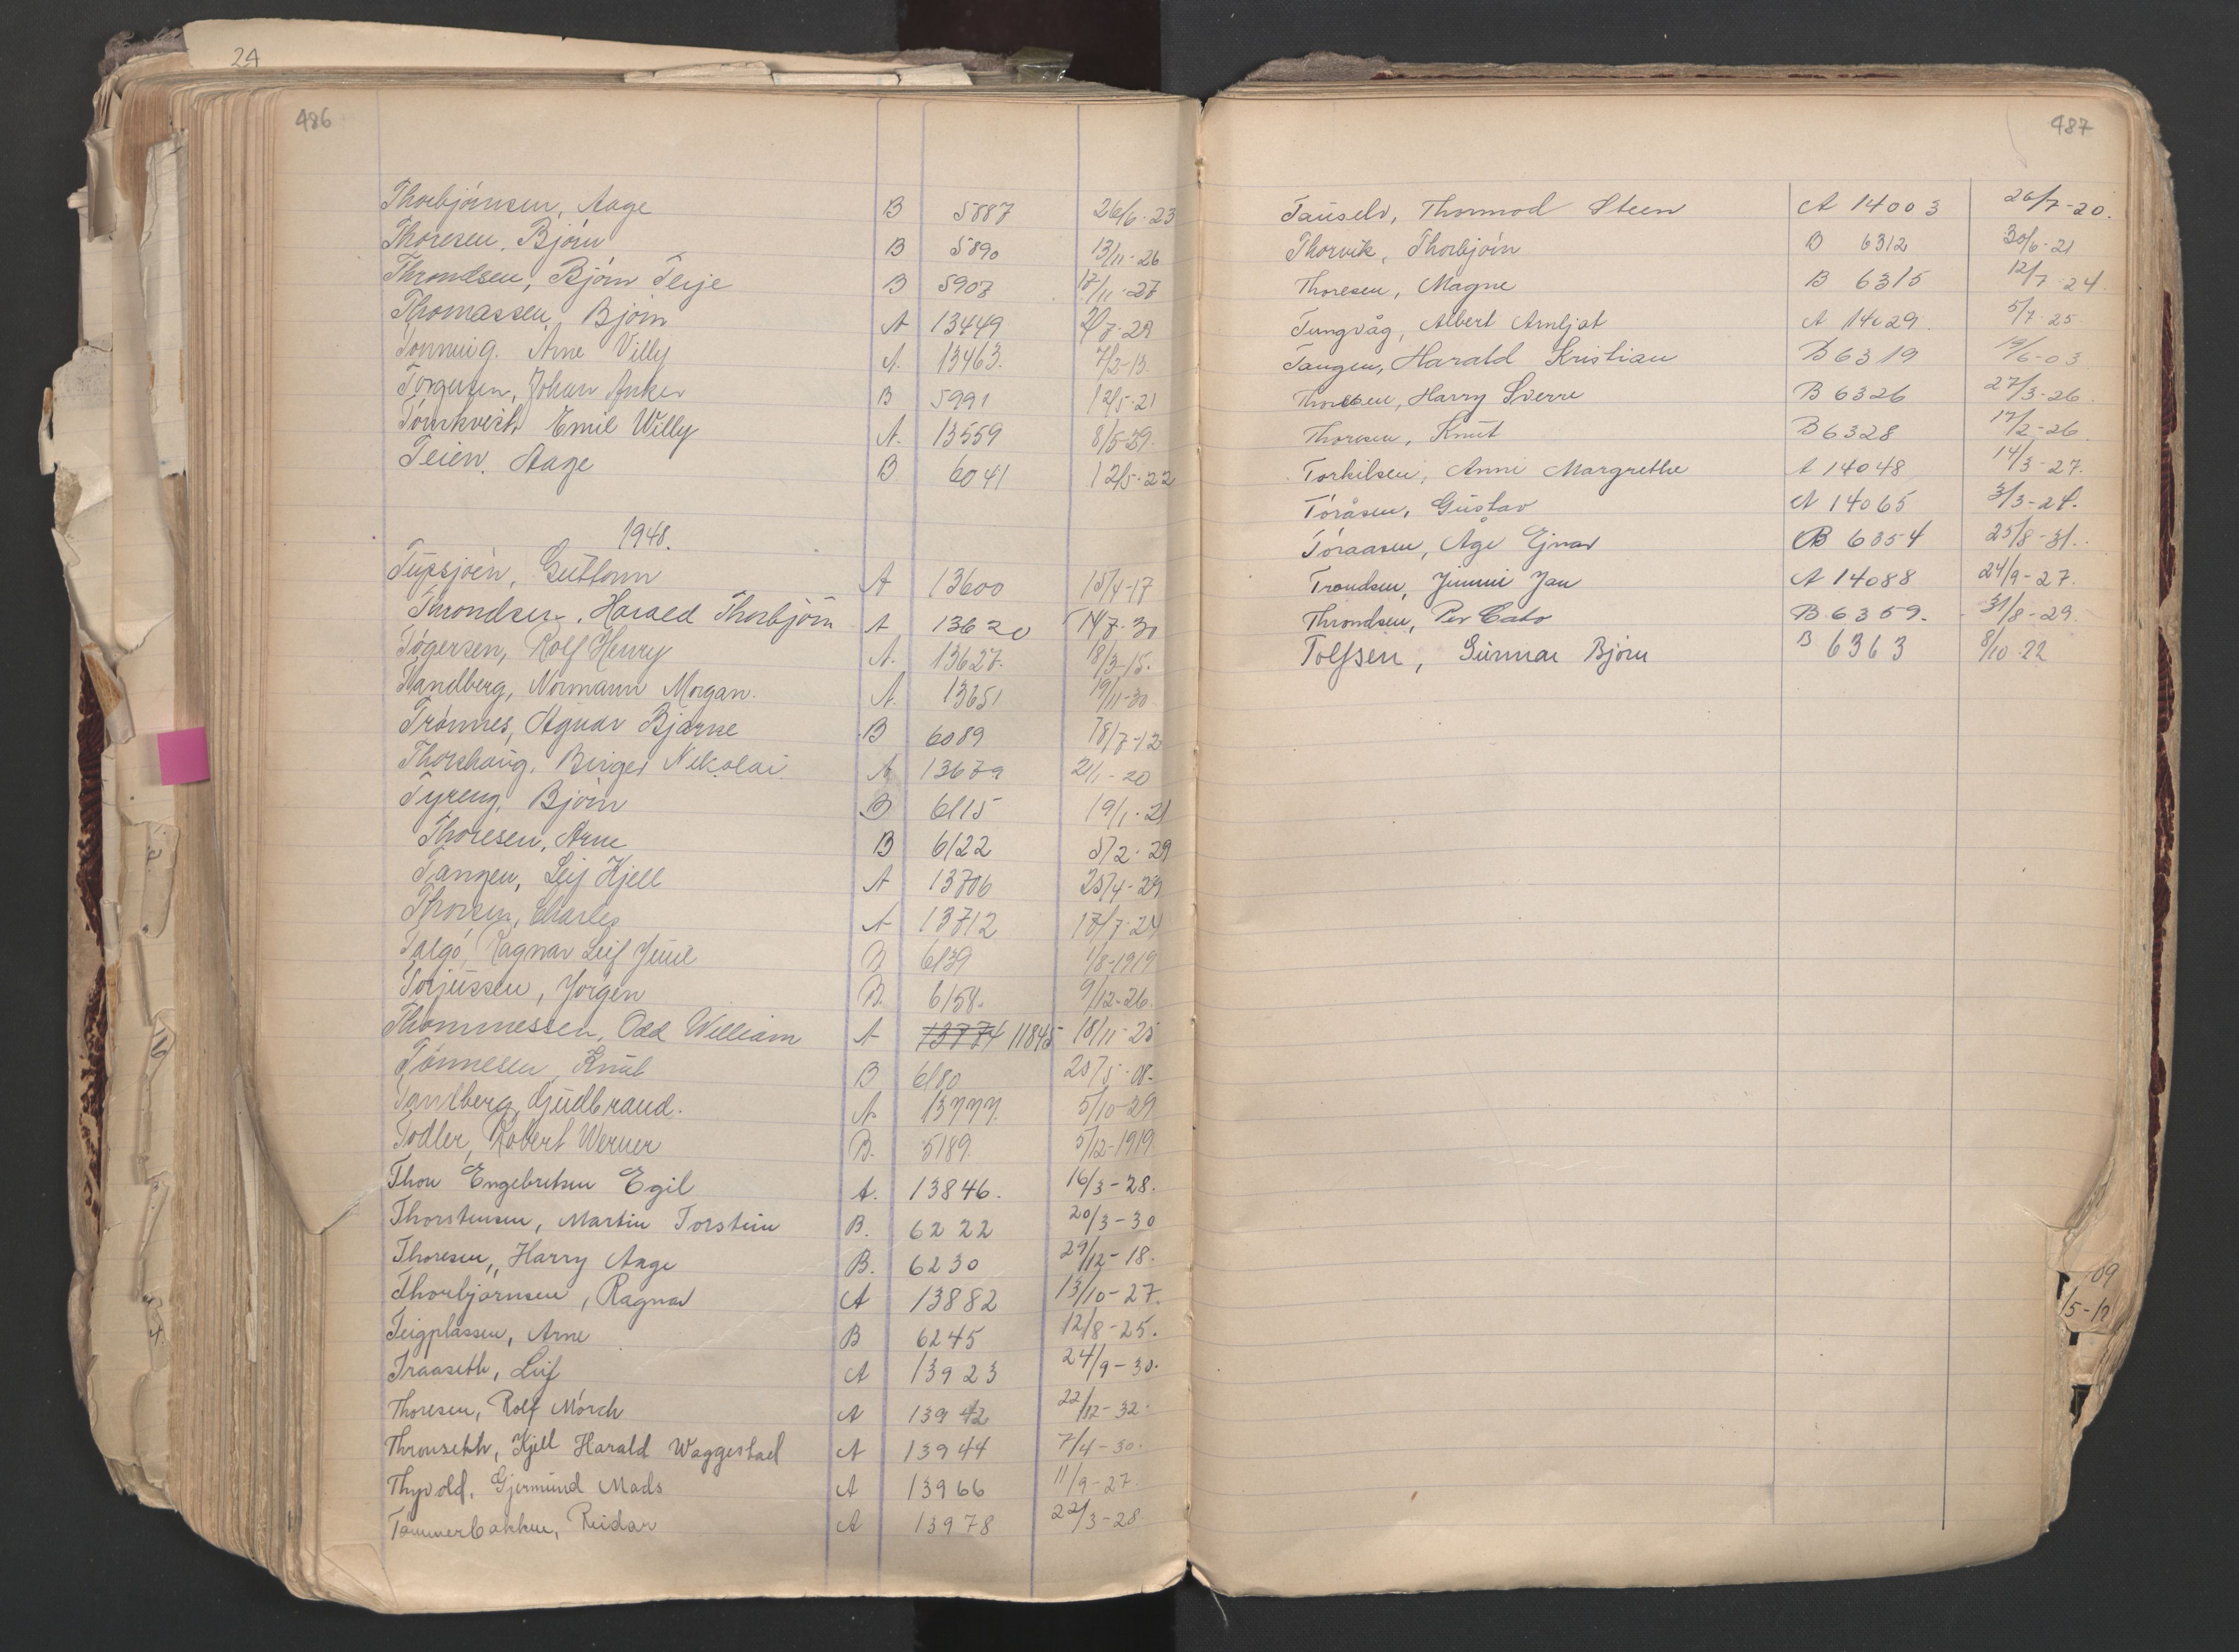 24
486
Thorbjørnsen, Aage B 5887 26/6-23
Thoresen, Bjørn B 5890 13/11-26
Throndsen, Bjørn Terje B 5907 17/11-27
Thomassen, Bjørn A 13449 /7-29
Tønning. Arne Villy A. 13463. 7/2-13
Torgersen, Johan Anker B 5991 12/5-21
Törnkvist, Emil Willy A. 13559 8/5-29.
Teien. Aage B 6041 12/5-22
1948.
Tupsjøen, Guttorm A 13600 15/4-17
Throndsen, Harald Thorbjørn A 13620 14/7-30
Tøgersen, Rolf Henry A. 13627. 18/3-15.
Tandberg, Normann Morgan. A. 13651 19/11-30
Trønnes, Agnar Bjarne B 6089 18/7-12
Thorshaug. Birger Nikolai A 13679 21/1-20
Tyreng, Bjørn B 6115 19/1-21
Thoresen, Arne B 6122 5/2-29
Tangen, Leif Kjell A 13706 25/4-29
Thorsen, Charles A 13712 17/7-24
Talgø, Ragnar Leif Juul B 6139 1/8-1919
Torjussen, Jørgen B. 6158. 9/12-26.
Thommessen, Odd William A 13774 11845 18/11-25
Tønnesen, Knut B 6180 25/5-08-
Tandberg, Gudbrand. A. 13777. 5/10-29
Todler, Robert Werner B. 5189. 5/12-1919
Thon Engebretsen Egil A. 13846. 16/3-28.
Thorstensen, Martin Torstein B. 6222 20/3-30
Thoresen, Harry Aage B. 6230 29/12-18.
Thorbjørnsen, Ragnar A 13882 13/10-27.
Teigplassen, Arne B 6245 12/8-25.
Traaseth, Leif A 13923 24/9-30.
Thoresen, Rolf Mørch A 13942 22/12-32.
Thronseth, Kjell Harald Waggestad A 13944 7/4-30.
Thyvold, Gjermund Mads A 13966 11/9-27.
Tømmerbakken, Reidar A 13978 22/3-28
487
Tauselv, Thormod Steen A 14003 26/7-20.
Thorvik, Thorbjørn B 6312 30/6-21
Thoresen, Magne B 6315 12/7-24.
Tungvåg, Albert Arnljot A 14029. 5/7-25
Tangen, Harald Kristian B 6319 19/6-03
Thoresen, Harry Sverre B 6326 27/3-26.
Thoresen, Knut B 6328 17/2-26.
Torkilsen, Anni Margrethe A 14048 14/3-27.
Töråsen, Gustav A 14065 3/3-28.
Töraasen, Åge Ejnar B 6354 25/8-31.
Trondsen, Jimmi Jan A 14088 24/9-27.
Throndsen, Per Cato B 6359. 31/8-29.
Tolfsen, Gunnar Bjørn B 6363 8/10-22
09